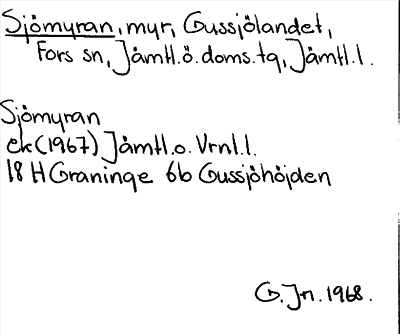 Sjömyran, myr, Gussjölandet,
Fors sn, Jämtl.ö.doms.tg, Jämtl.l.
Sjömyran
ek(1967) Jämtl.o. Vrnl.l.
18 H Graninge 6b Gussjöhöjden
G.Jn. 1968.